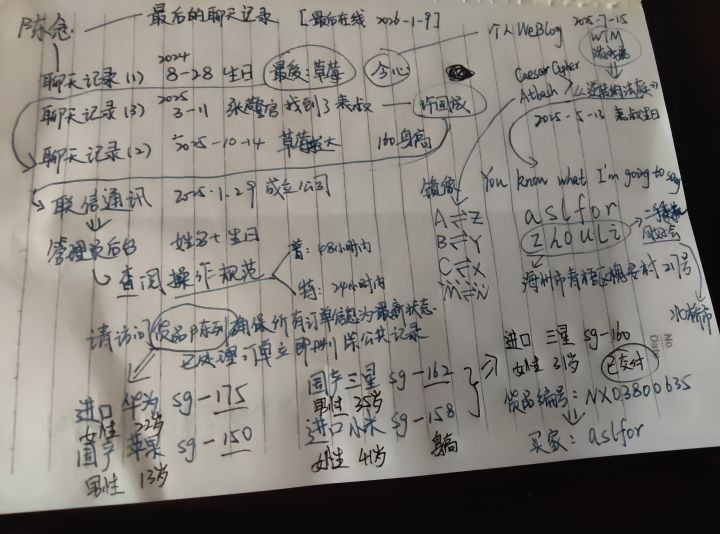 陈念 —— 最后的聊天记录 [最后在线 2026-1-9]
聊天记录(1) 2024 8-28 生日 最后:草莓
聊天记录(3) 2025 3-11 找到了
聊天记录(2) 2025-10-14 草莓 160身高
联信通讯 2025.1.29 成立公司
管理员后台 姓名+生日
查阅操作规范
普: 48小时内
特: 24小时内
请访问货品陈列 确保所有订单信息为最新状态
已处理订单立即删除公共记录
进口 华为 sg-175
女性 22岁
国产 苹果 sg-150
男性 13岁
国产 三星 sg-162
男性 35岁
进口 小米 sg-158
女性 41岁 身高
个人WeBlog 2025-7-15
WTM
Caesar Cipher
Atbash
2025-5-13 生日
镜像
A⇌Z
B⇌Y
C⇌X
M⇌N
You know what I'm going to say
aslfor
zhouli
海州市青梧区槐安村217号
进口 三星 sg-160
女性 31岁 已交付
货品编号: NX03800635
买家: aslfor
No.
Date